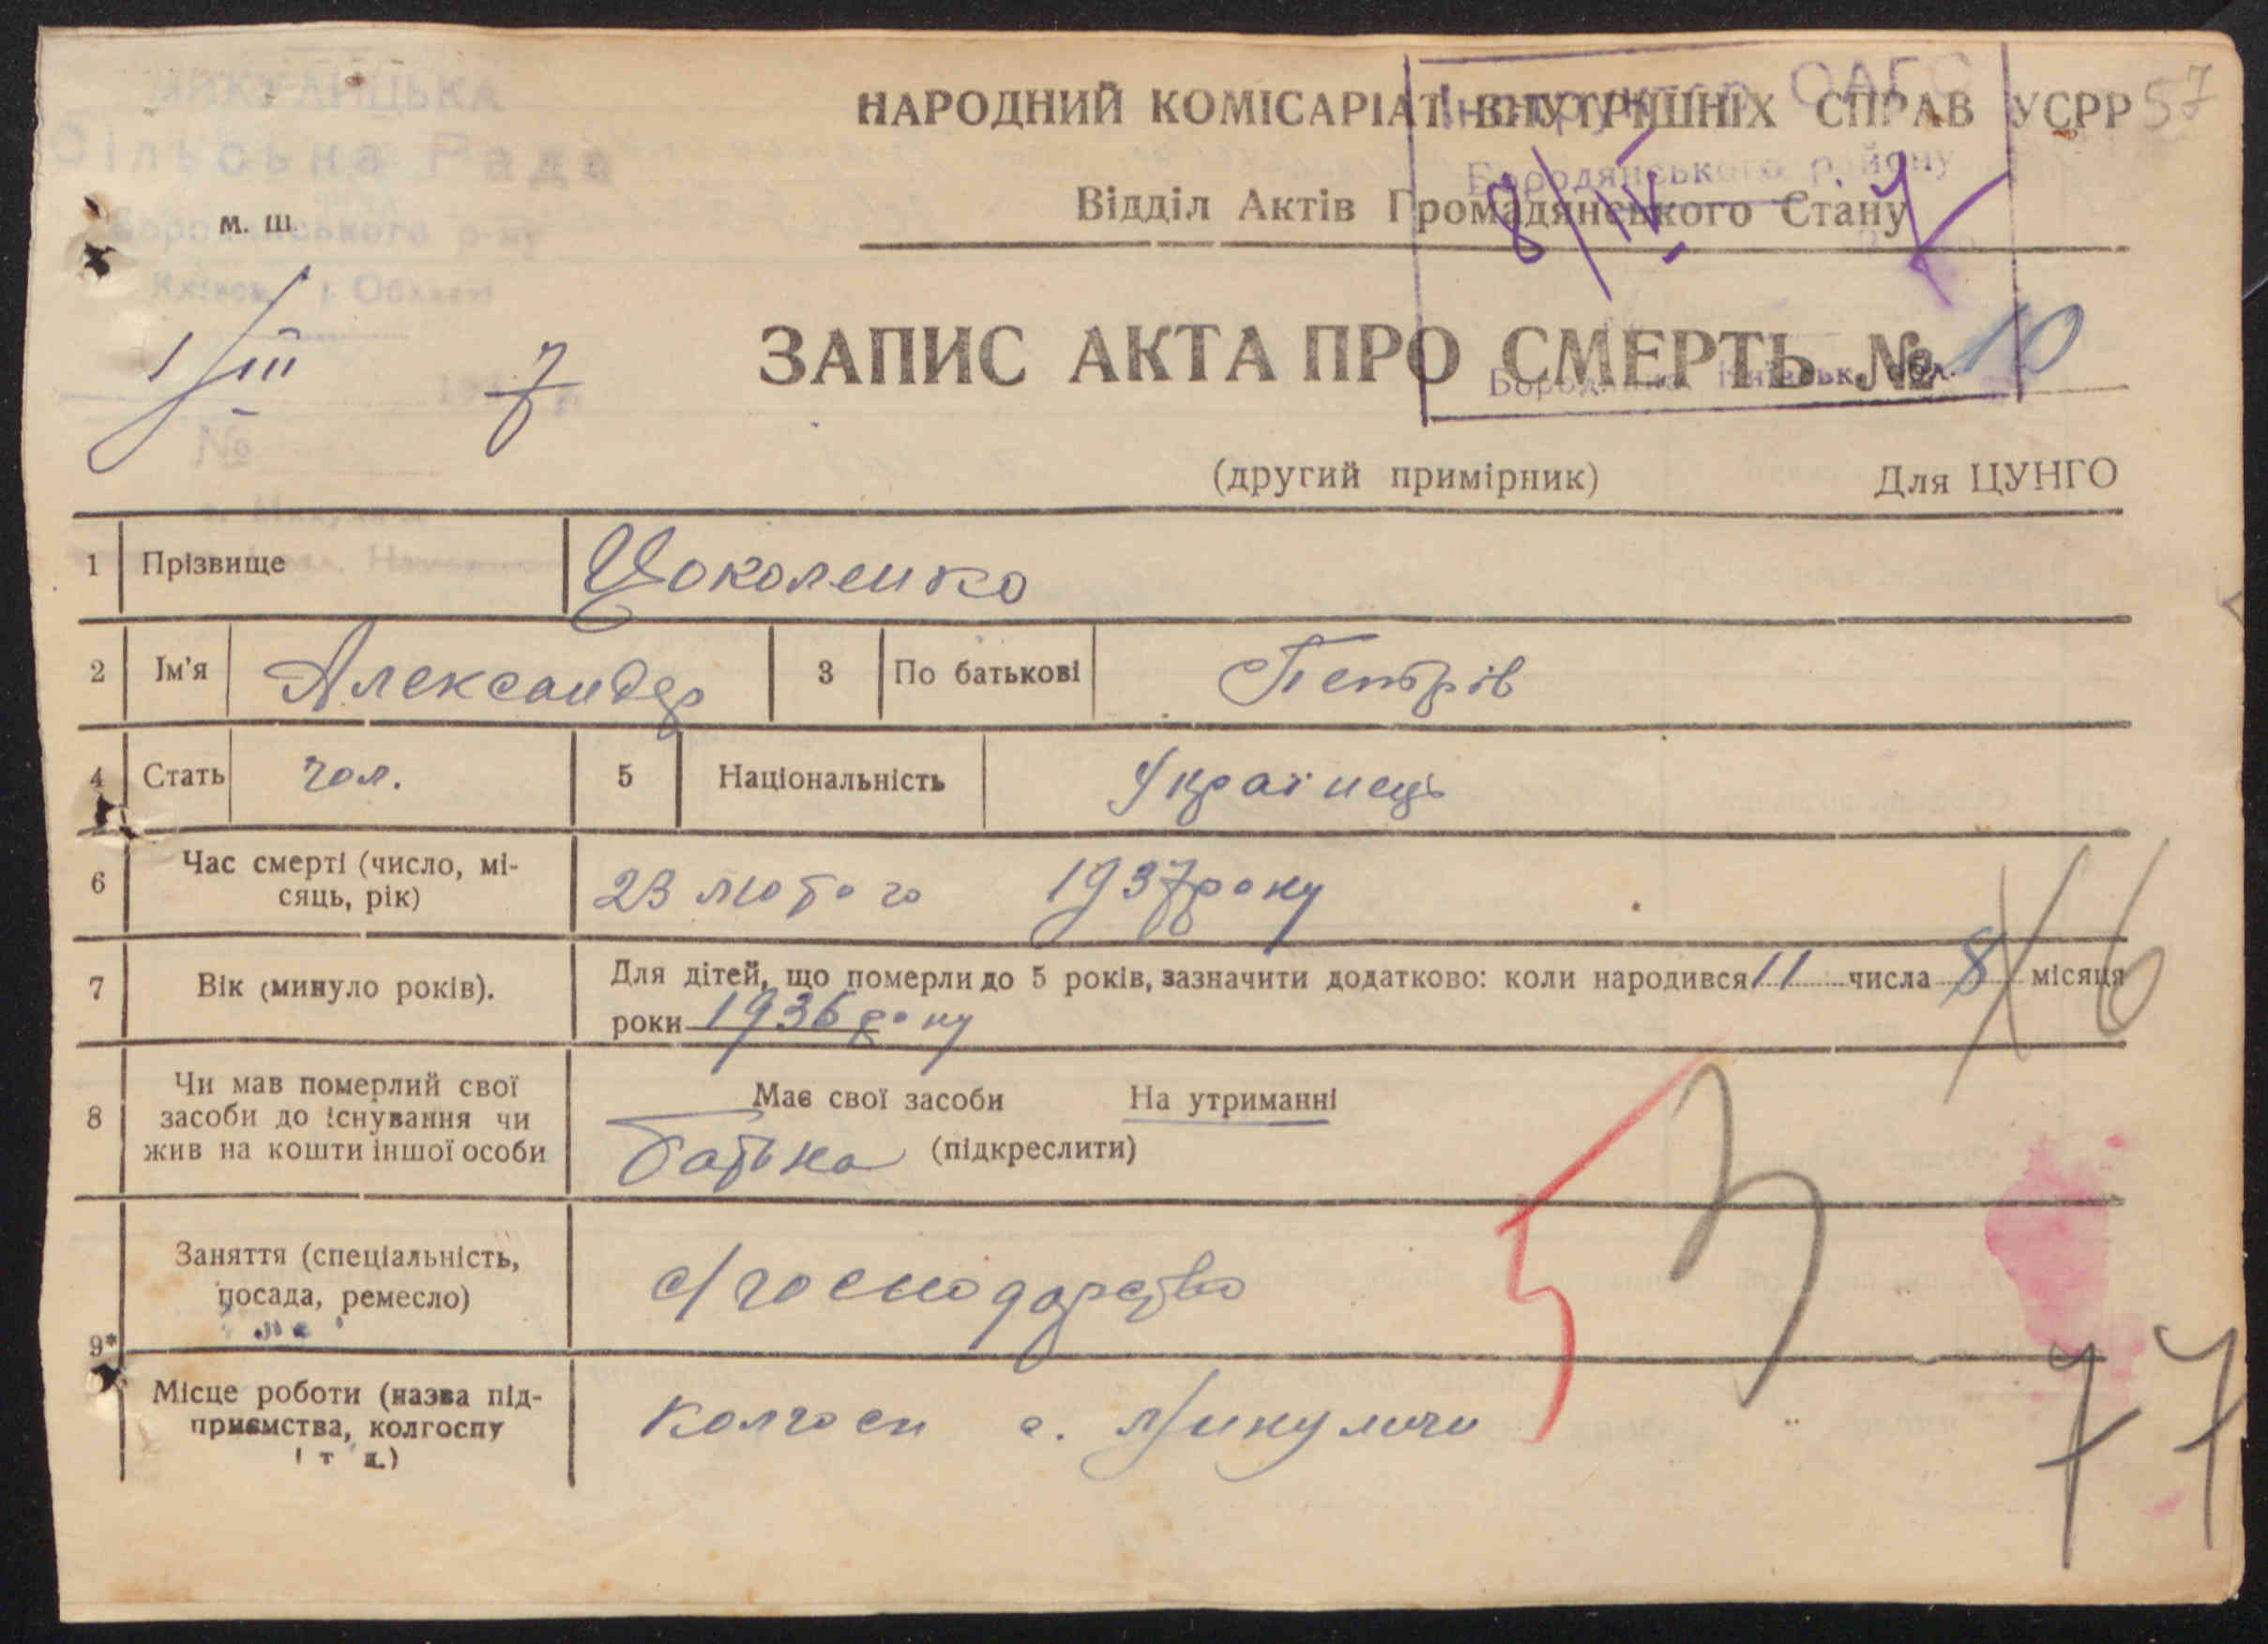 МИКУЛИЦЬКА
Сільська Рада
Бородянського р-ну
Київськ. Області
м. ш.
1/III 193 7 р.
№
57
НАРОДНИЙ КОМІСАРІАТ ВНУТРІШНІХ СПРАВ УСРР
Відділ Актів Громадянського Стану
Інспектор ОАГС
Бородянського району
8/IV
ЗАПИС АКТА ПРО СМЕРТЬ № 10
(другий примірник) Для ЦУНГО
1 Прізвище Цоколенко
2 Ім'я Александр 3 По батькові Петрів
4 Стать чол. 5 Національність Українець
6 Час смерті (число, мі-
сяць, рік) 23 лютого 1937 року
7 Вік (минуло років). Для дітей, що померли до 5 років, зазначити додатково: коли народився 11 числа 8 місяця
роки 1936 року
Х 6
8 Чи мав померлий свої
засоби до існування чи
жив на кошти іншої особи
Має свої засоби На утриманні
Батька (підкреслити)
9* Заняття (спеціальність,
посада, ремесло) с/господарство
Місце роботи (назва під-
приємства, колгоспу
і т д.) Колгосп с. Микуличи
77